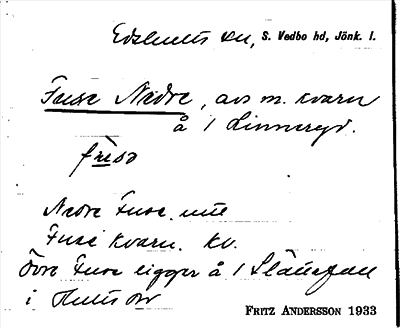 Edshults sn, S. Vedbo hd, Jönk. l.
Fuse Nedre, avs m. kvarn
å 1 Linneryd.
fʉsə
Nedre Fuse
Fuse kvarn. kv.
Övre Fuse ligger å 1
i Hults sn
FRITZ ANDERSSON 1933